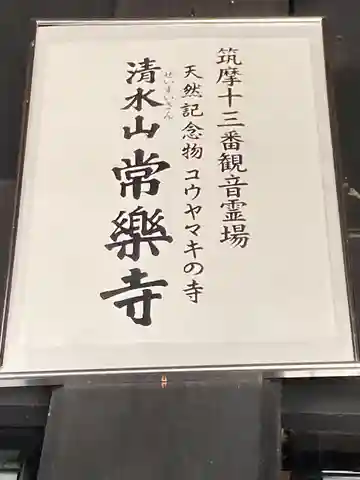 筑摩十三番観音霊場
天然記念物 コウヤマキの寺
清水山 常樂寺
せいすいさん